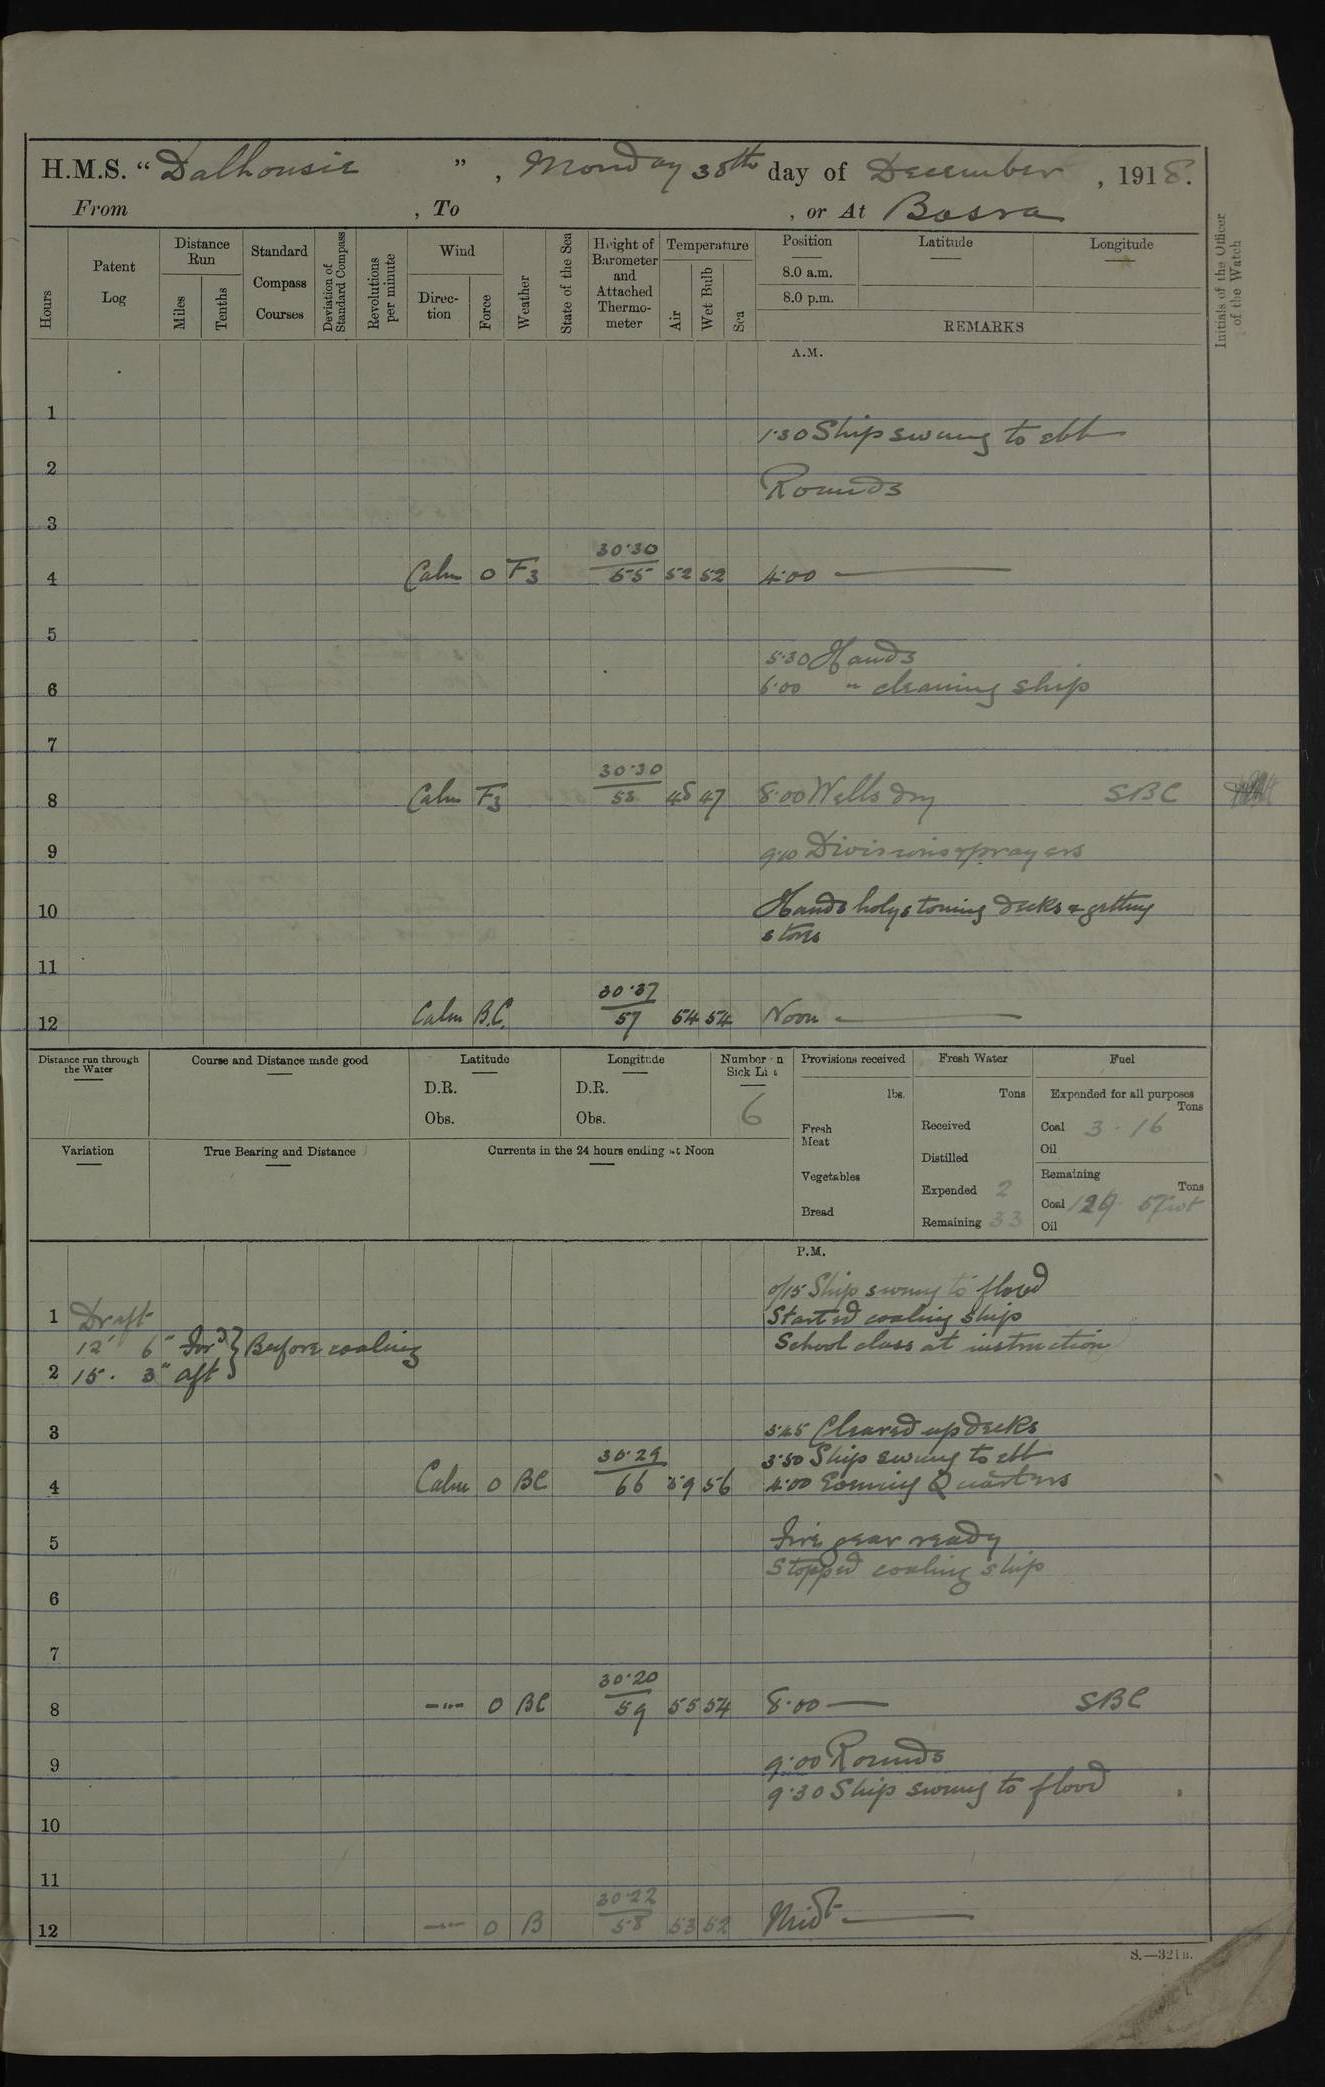 H.M.S. “ Dalhousie ” , Monday 30th day of December , 1918.
From , To , or At Basra
Hours
Patent Log
Distance Run
Miles
Tenths
Standard Compass Courses
Deviation of Standard Compass
Revolutions per minute
Wind
Direc- tion
Force
Weather
State of the Sea
Height of Barometer and Attached Thermo- meter
Temperature
Air
Wet Bulb
Sea
Position
8.0 a.m.
8.0 p.m.
Latitude
Longitude
REMARKS
Initials of the Officer of the Watch
A.M.
1
1·30 Ship swung to ebb
2
Rounds
3
30·30
4 Calm 0 F3 55 52 52 4·00
5
5·30 Hands
6 6·00 " cleaning ship
7
30·30
8 Calm F3 53 48 47 8·00 Wells dry SBC
9 9·10 Divisions & prayers
10 Hands holystoning decks & getting
stores
11
30·37
12 Calm B.C. 57 54 54 Noon
Distance run through the Water
Course and Distance made good
Latitude
D.R.
Obs.
Longitude
D.R.
Obs.
Number on Sick List
6
Provisions received
lbs.
Fresh Meat
Vegetables
Bread
Fresh Water
Tons
Received
Distilled
Expended 2
Remaining 33
Fuel
Expended for all purposes
Tons
Coal 3 · 16
Oil
Remaining
Tons
Coal 129 · 5 cwt
Oil
Variation
True Bearing and Distance
Currents in the 24 hours ending at Noon
P.M.
0/15 Ship swung to flood
1 Draft Started coaling ship
12' 6" For'd } Before coaling School class at instruction
2 15. 3" aft
3 3·45 Cleared up decks
30·29 3·50 Ship swung to ebb
4 Calm 0 BC 66 59 56 4·00 Evening Quarters
5 Fire gear ready
Stopped coaling ship
6
7
30·20
8 -"- 0 BC 59 55 54 8·00 SBC
9 9·00 Rounds
9·30 Ship swung to flood
10
11
30·22
12 -"- 0 B 58 53 52 Midt
S.—321B.